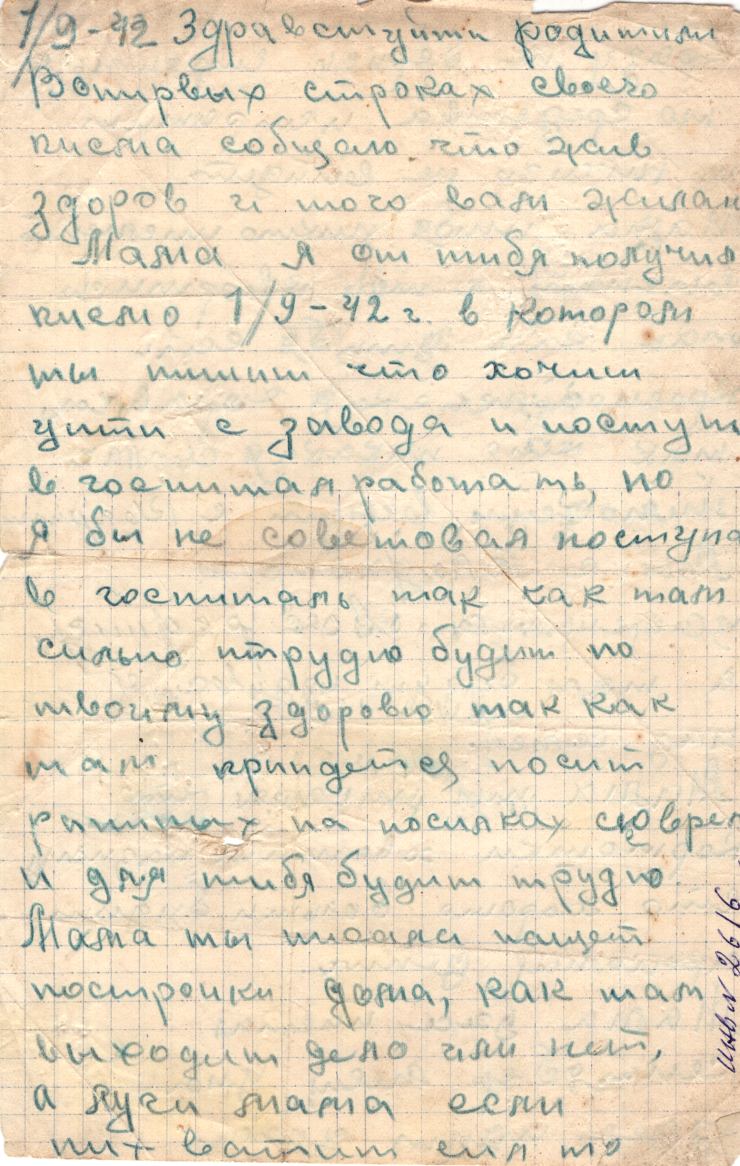 1/9-42 Здравствуйти родитили
Вопирвых строках своего
писма собщаю что жив
здоров и того вам жилаю
Мама я от тибя получил
писмо 1/9-42 г. в котором
ты пишиш что хочиш
уити с завода и поступи
в госпиталя работать, но
я бы не советовал поступа
в госпиталь так как там
сильно трудно будит по
твоиму здоровю так как
там приидется носит
раниных на носилках
и для тибя будит трудно.
Мама ты писала нащет
построики дома, как там
выходит дело или нет,
а лучи мама если
них ватит сил то
инв № 2616